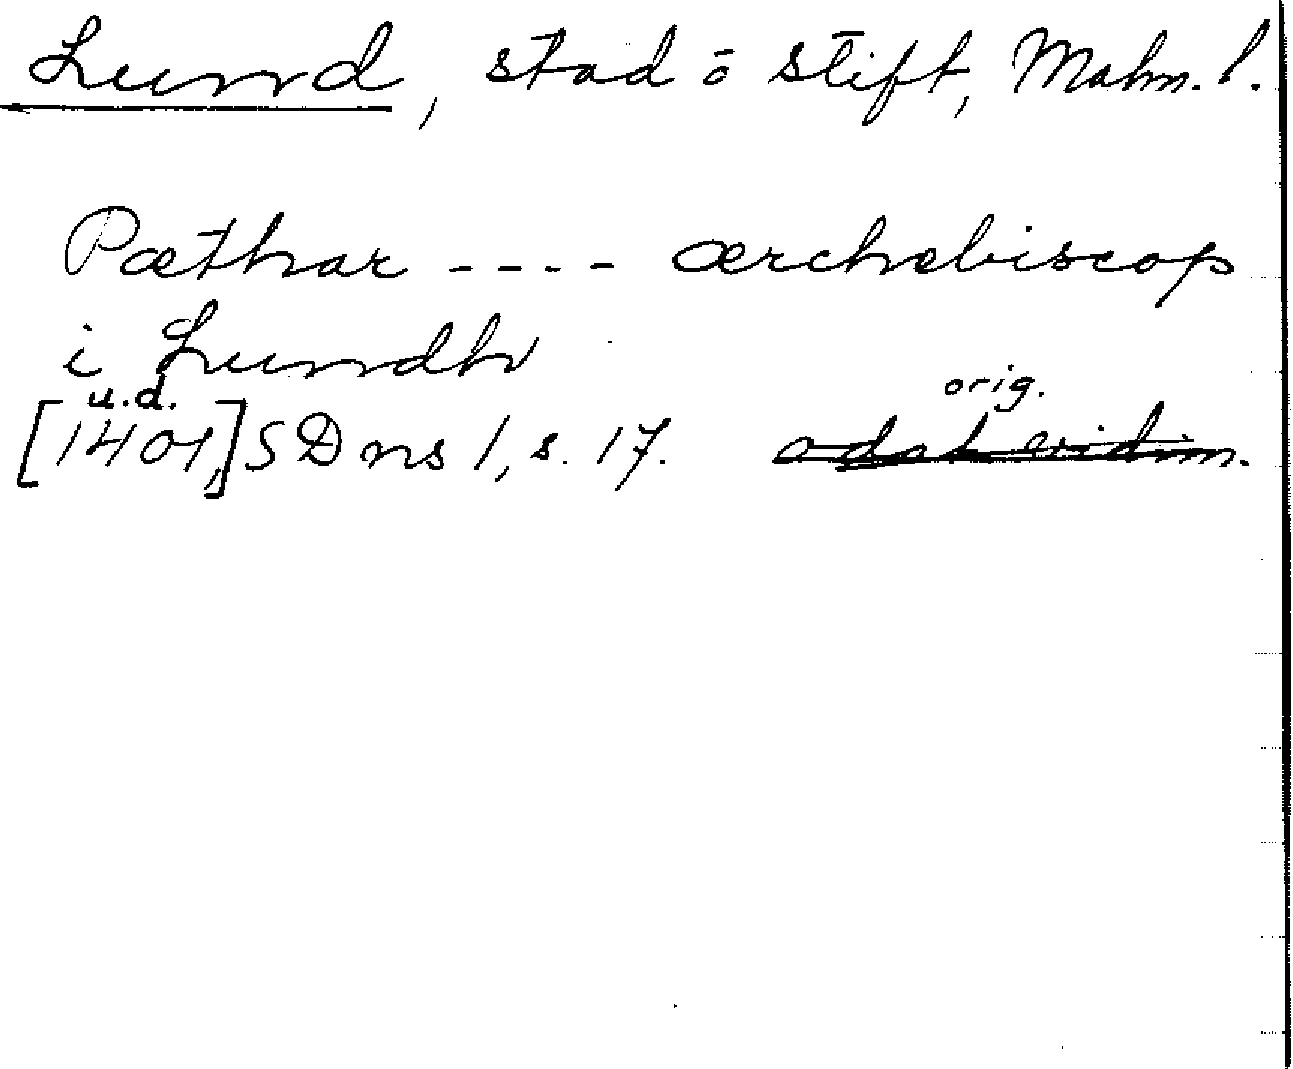 Lund, stad o stift, Malm. l.
Pæthar ---- ærchebiscop
i Lundh
u.d. orig.
[1401,] SD ns 1, s. 17.